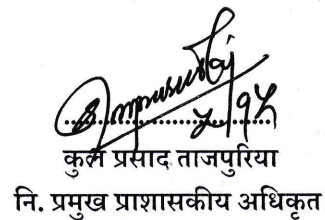 कुल प्रसाद ताजपुरिया
नि. प्रमुख प्रशासकीय अधिकृत